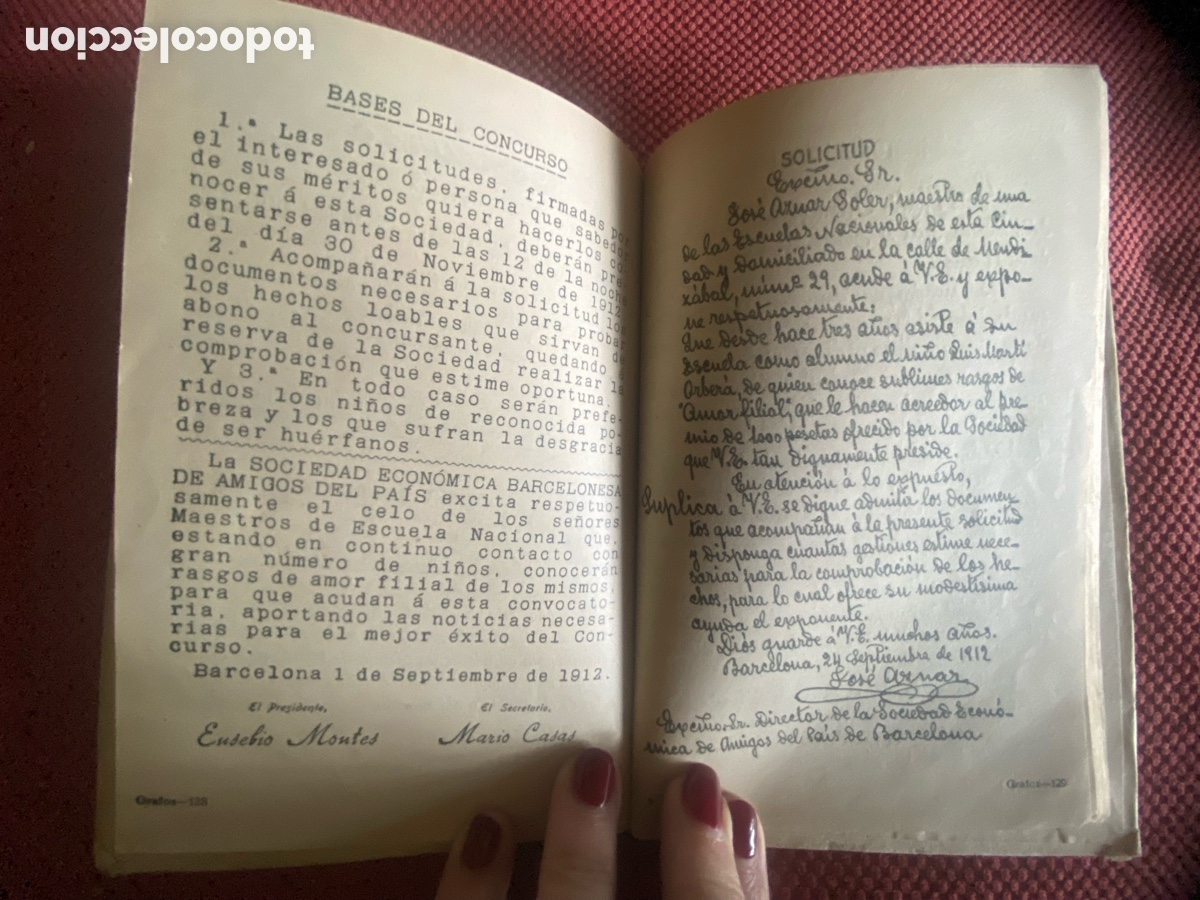 todocoleccion
BASES DEL CONCURSO
1.ª Las solicitudes, firmadas por
el interesado ó persona que sabedor
de sus méritos quiera hacerlos co-
nocer á esta Sociedad, deberán pre-
sentarse antes de las 12 de la noche
del día 30 de Noviembre de 1912.
2.ª Acompañarán á la solicitud los
documentos necesarios para probar
los hechos loables que sirvan de
abono al concursante, quedando á
reserva de la Sociedad realizar la
comprobación que estime oportuna.
Y 3.ª En todo caso serán prefe-
ridos los niños de reconocida po-
breza y los que sufran la desgracia
de ser huérfanos.
La SOCIEDAD ECONÓMICA BARCELONESA
DE AMIGOS DEL PAÍS excita respetuo-
samente el celo de los señores
Maestros de Escuela Nacional que,
estando en continuo contacto con
gran número de niños, conocerán
rasgos de amor filial de los mismos,
para que acudan á esta convocato-
ria, aportando las noticias necesa-
rias para el mejor éxito del Con-
curso.
Barcelona 1 de Septiembre de 1912.
El Presidente,
El Secretario,
Eusebio Montes
Mario Casas
Grafos—128
SOLICITUD
Excmo. Sr.
José Aznar Soler, maestro de una
de las Escuelas Nacionales de esta Ciu-
dad y domiciliado en la calle de Mendi
zábal, núm.º 29, acude á V.E. y expo-
ne respetuosamente:
Que desde hace tres años asiste á su
Escuela como alumno el niño Luis Martí
Arberá, de quien conoce sublimes rasgos de
"Amor filial", que le hacen acreedor al pre-
mio de 1000 pesetas ofrecido por la Sociedad
que V.E. tan dignamente preside.
En atención á lo expuesto,
Suplica á V.E. se digne admitir los documen
tos que acompañan á la presente solicitud
y disponga cuantas gestiones estime nece-
sarias para la comprobación de los he-
chos, para lo cual ofrece su modestísima
ayuda el exponente.
Dios guarde á V.E. muchos años.
Barcelona, 24 Septiembre de 1912
José Aznar
Excmo. Sr. Director de la Sociedad Econó-
mica de Amigos del País de Barcelona
Grafos—129